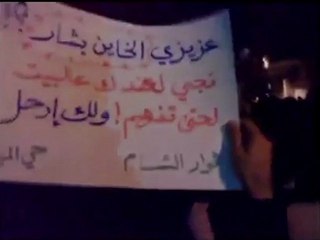 عزيزي الخاين بشار
نجي لعندك عالبيت
لحتى تفهم! ولك إرحل
الشام